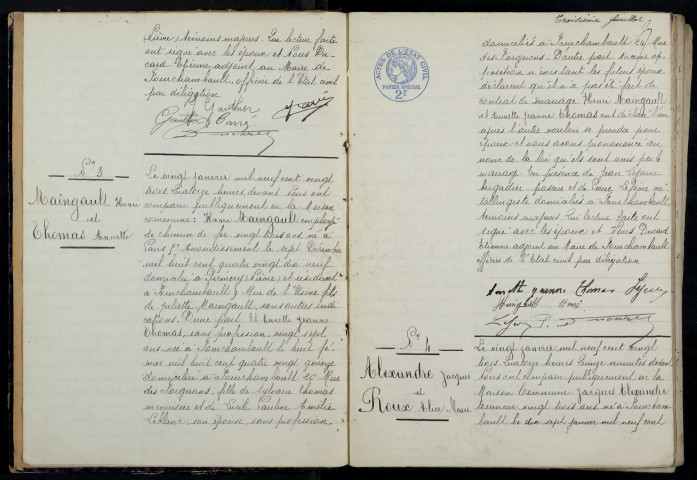 Nièvre témoins majeurs. Qui lecture faite
ont signé avec les époux et Nous Du-
card Etienne adjoint au Maire de
Fourchambault, officier de l'Etat civil
par délégation
Gauthier
N° 3
Maingault Henri
et
Thomas Annette
Le vingt janvier mil neuf cent vingt
trois quatorze heures devant nous ont
comparu publiquement en la Maison
commune: Henri Maingault employé
de chemin de fer vingt trois ans né à
Paris arrondissement le sept Décembre
mil huit cent quatre vingt dix neuf
domicilié à Prémery (Nièvre) et résidant
à Fourchambault Rue de l'Usine fils
de Juliette Maingault, sans autres indi-
cations. D'une part Et Annette Jeanne
Thomas, sans profession, vingt sept
ans née à Fourchambault le huit fé-
vrier mil huit cent quatre vingt quinze
domiciliée à Fourchambault 24 Rue
des Poignons, fille de Sylvain Thomas
menuisier et de Pauline Amélie
Leblanc, son épouse, sans profession,
Troisième feuillet
ACTES DE L'ÉTAT CIVIL
PAPIER SPÉCIAL
2F
domiciliés à Fourchambault 24 Rue
des Poignons. D'autre part
position n'existant les futurs époux
déclarent qu'il n'a pas été fait de
contrat de mariage Henri Maingault
et Annette Jeanne Thomas ont déclaré l'un
après l'autre vouloir se prendre pour
époux et nous avons prononcé au
nom de la loi qu'ils sont unis par le
mariage En présence de Jean Lejeune
brigadier et de Pierre mé-
tallurgiste domiciliés à Fourchambault
témoins majeurs Qui lecture faite ont
signé avec les époux et Nous Ducard
Etienne adjoint au Maire de Fourchambault
officier de l'Etat civil par délégation
Thomas
N° 4
Alexandre Jacques
et
Roux Alice Marie
Le vingt janvier mil neuf cent vingt
trois quatorze heures quinze minutes devant
nous ont comparu publiquement en la
Maison Commune Jacques Alexandre
tourneur vingt trois ans né à Fourcham-
bault le dix sept janvier mil neuf cent